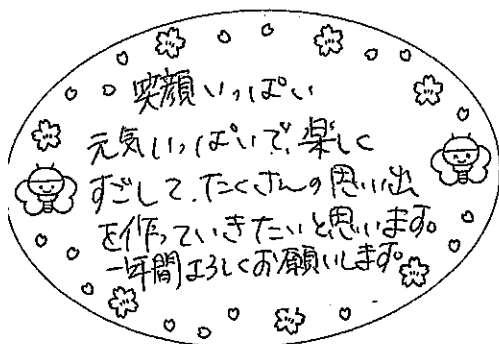 笑顔いっぱい
元気いっぱいで、楽しく
すごして、たくさんの思い出
を作っていきたいと思います。
一年間よろしくお願いします。